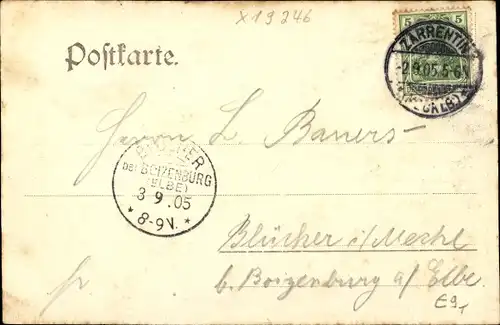 X19246
Postkarte.
5 5
ZARRENTIN
-2.9.05.5-6N
(MECKLB)
Herrn L. Baners-
BLÜCHER
bei BOIZENBURG
(ELBE)
3 9 .05
* 8-9V. *
Blücher i/Meckl
b. Boizenburg a/Elbe.
fr
E9,-